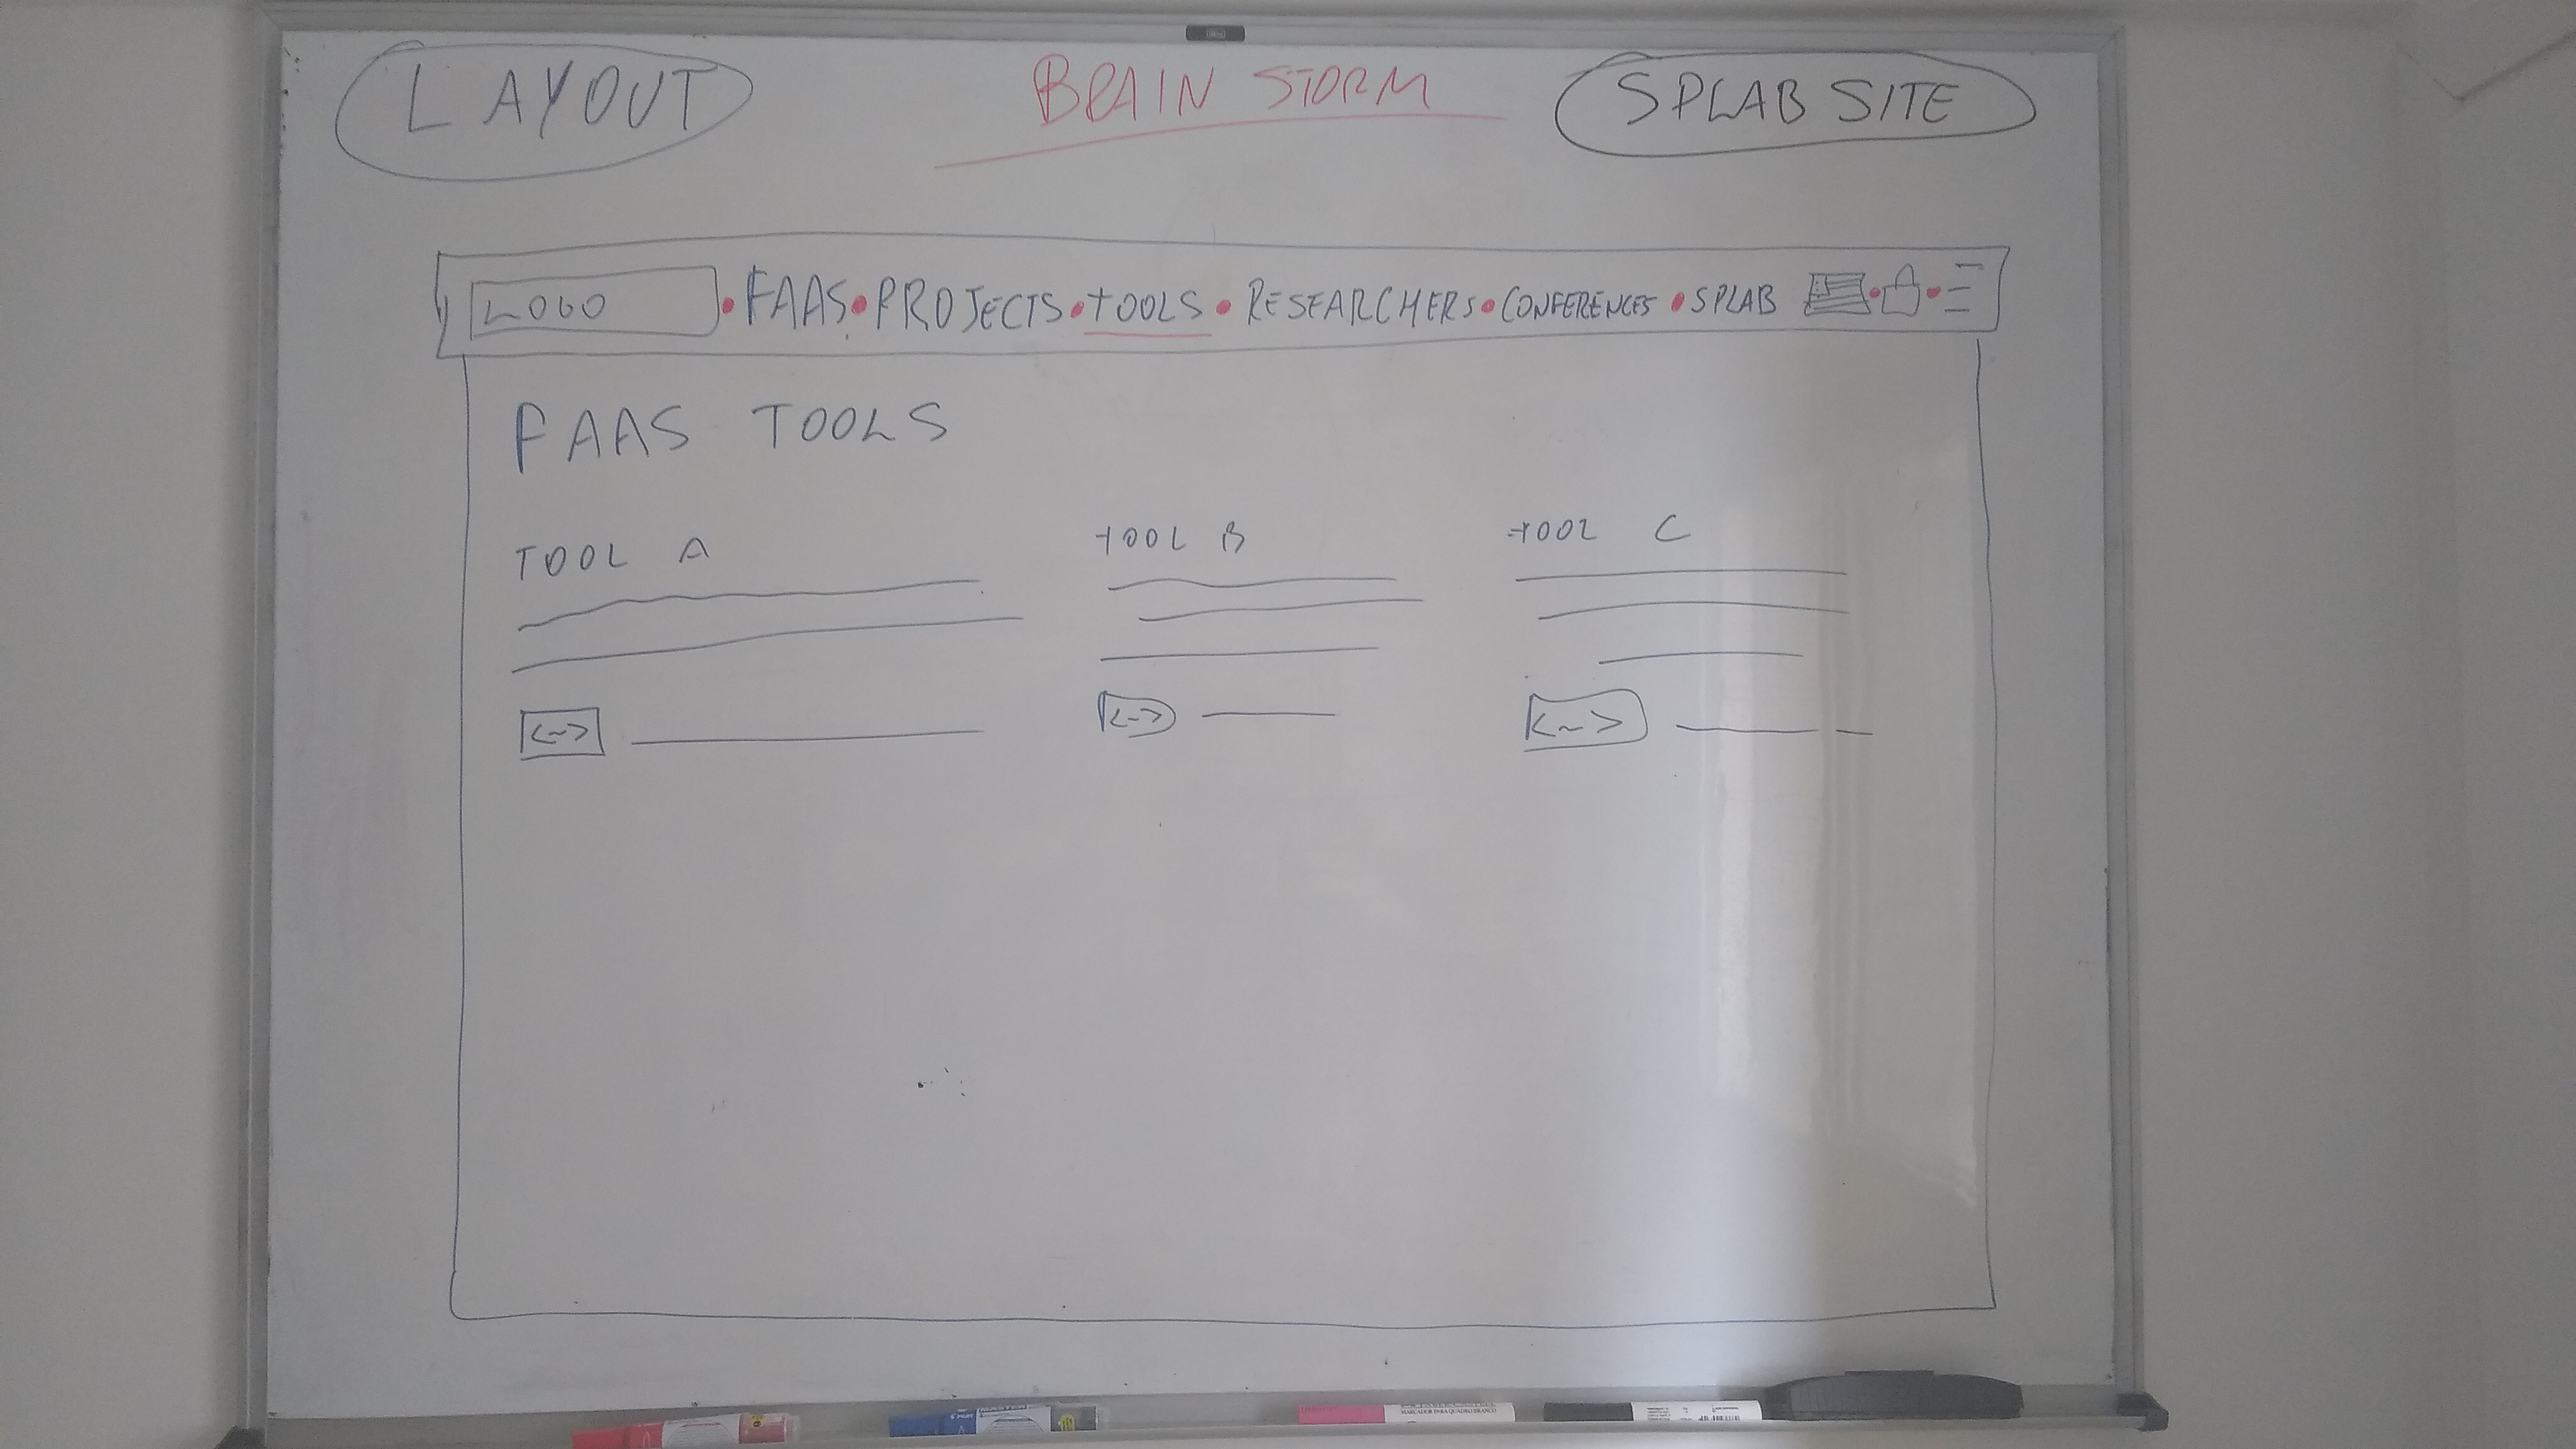 LAYOUT BRAIN STORM SPLAB SITE
LOGO • FAAS • PROJECTS • TOOLS • RESEARCHERS • CONFERENCES • SPLAB
FAAS TOOLS
TOOL A TOOL B TOOL C
<~> <~> <~>
MASTER
MARCADOR PARA QUADRO BRANCO